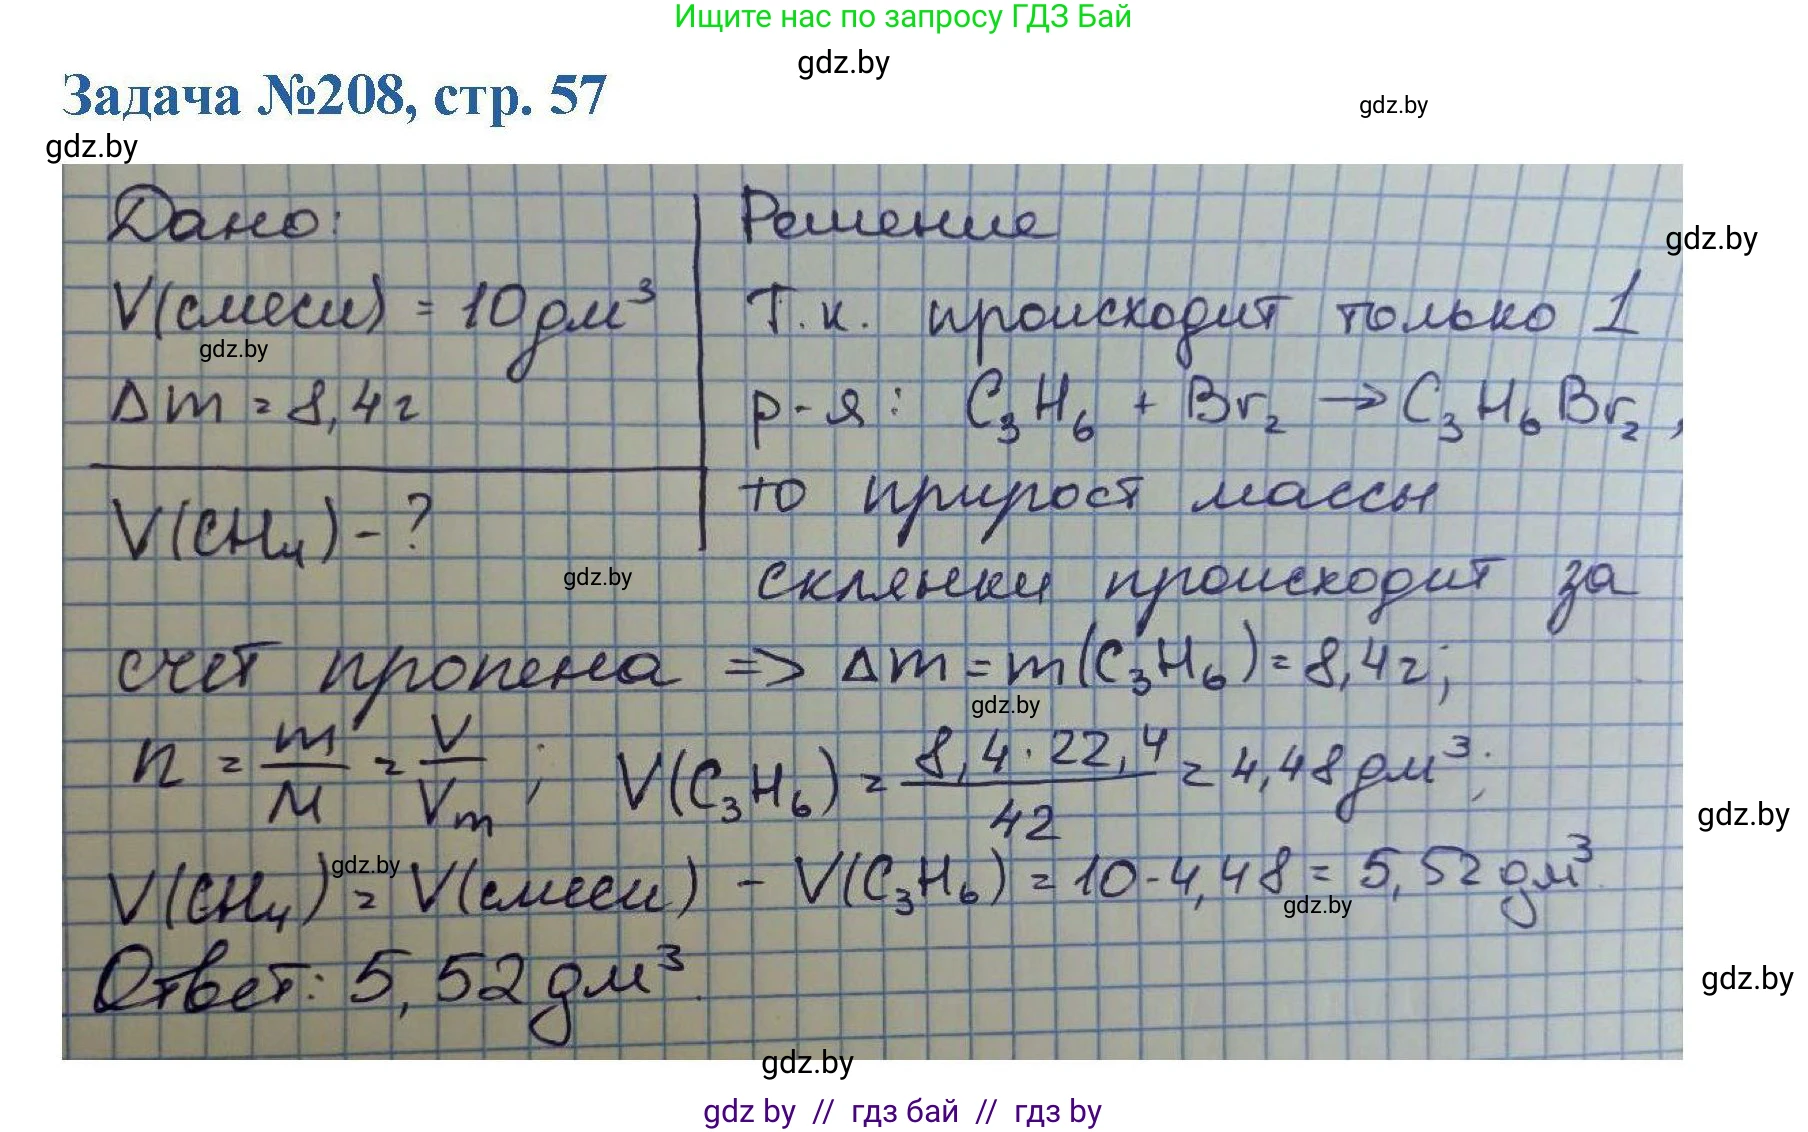 Ищите нас по запросу ГДЗ Бай
gdz.by
Задача №208, стр. 57
gdz.by
gdz.by
Дано:
Решение
gdz.by
V(смеси) = 10 дм³
Т.к. происходит только 1
gdz.by
Δm = 8,4г
р-я: C₃H₆ + Br₂ → C₃H₆Br₂,
то прирост массы
V(CH₄) - ?
gdz.by
склянки происходит за
счет пропена => Δm = m(C₃H₆) = 8,4г;
gdz.by
n = m/M = V/Vm ; V(C₃H₆) = 8,4·22,4/42 = 4,48 дм³;
gdz.by
gdz.by
V(CH₄) = V(смеси) - V(C₃H₆) = 10-4,48 = 5,52 дм³.
gdz.by
Ответ: 5,52 дм³.
gdz.by
gdz.by
gdz by // гдз бай // гдз by